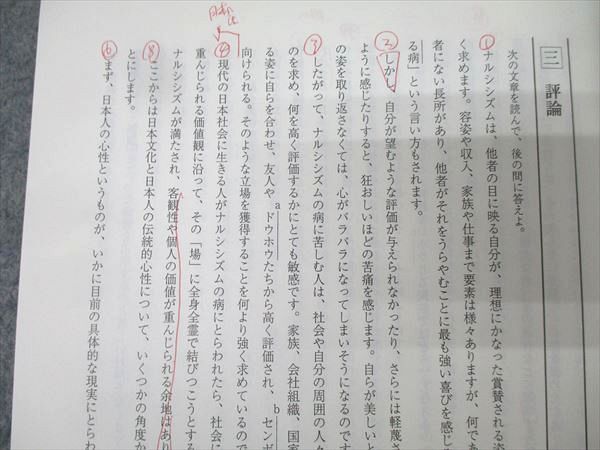 三　評論
次の文章を読んで、後の問に答えよ。
①ナルシシズムは、他者の目に映る自分が、理想にかなった賞賛される姿
く求めます。容姿や収入、家族や仕事まで要素は様々ありますが、何であ
者にない長所があり、他者がそれをうらやむことに最も強い喜びを感じ
る病」という言い方もされます。
②しかし、自分が望むような評価が与えられなかったり、さらには軽蔑さ
ように感じたりすると、狂おしいほどの苦痛を感じます。自らが美しいと
の姿を取り返さなくては、心がバラバラになってしまいそうになるのです
③したがって、ナルシシズムの病に苦しむ人は、社会や自分の周囲の人々
のを求め、何を高く評価するかにとても敏感です。家族、会社組織、国家
る姿に自らを合わせ、友人やaドウホウたちから高く評価され、bセンボ
向けられる。そのような立場を獲得することを何より強く求めているので
④現代の日本社会に生きる人がナルシシズムの病にとらわれたら、社会に
重んじられる価値観に沿って、その「場」に全身全霊で結びつこうとする
ナルシシズムが満たされ、客観性や個人の価値が重んじられる余地はあり
⑤ここからは日本文化と日本人の伝統的心性について、いくつかの角度か
とにします。
⑥まず、日本人の心性というものが、いかに目前の具体的な現実にとらわ